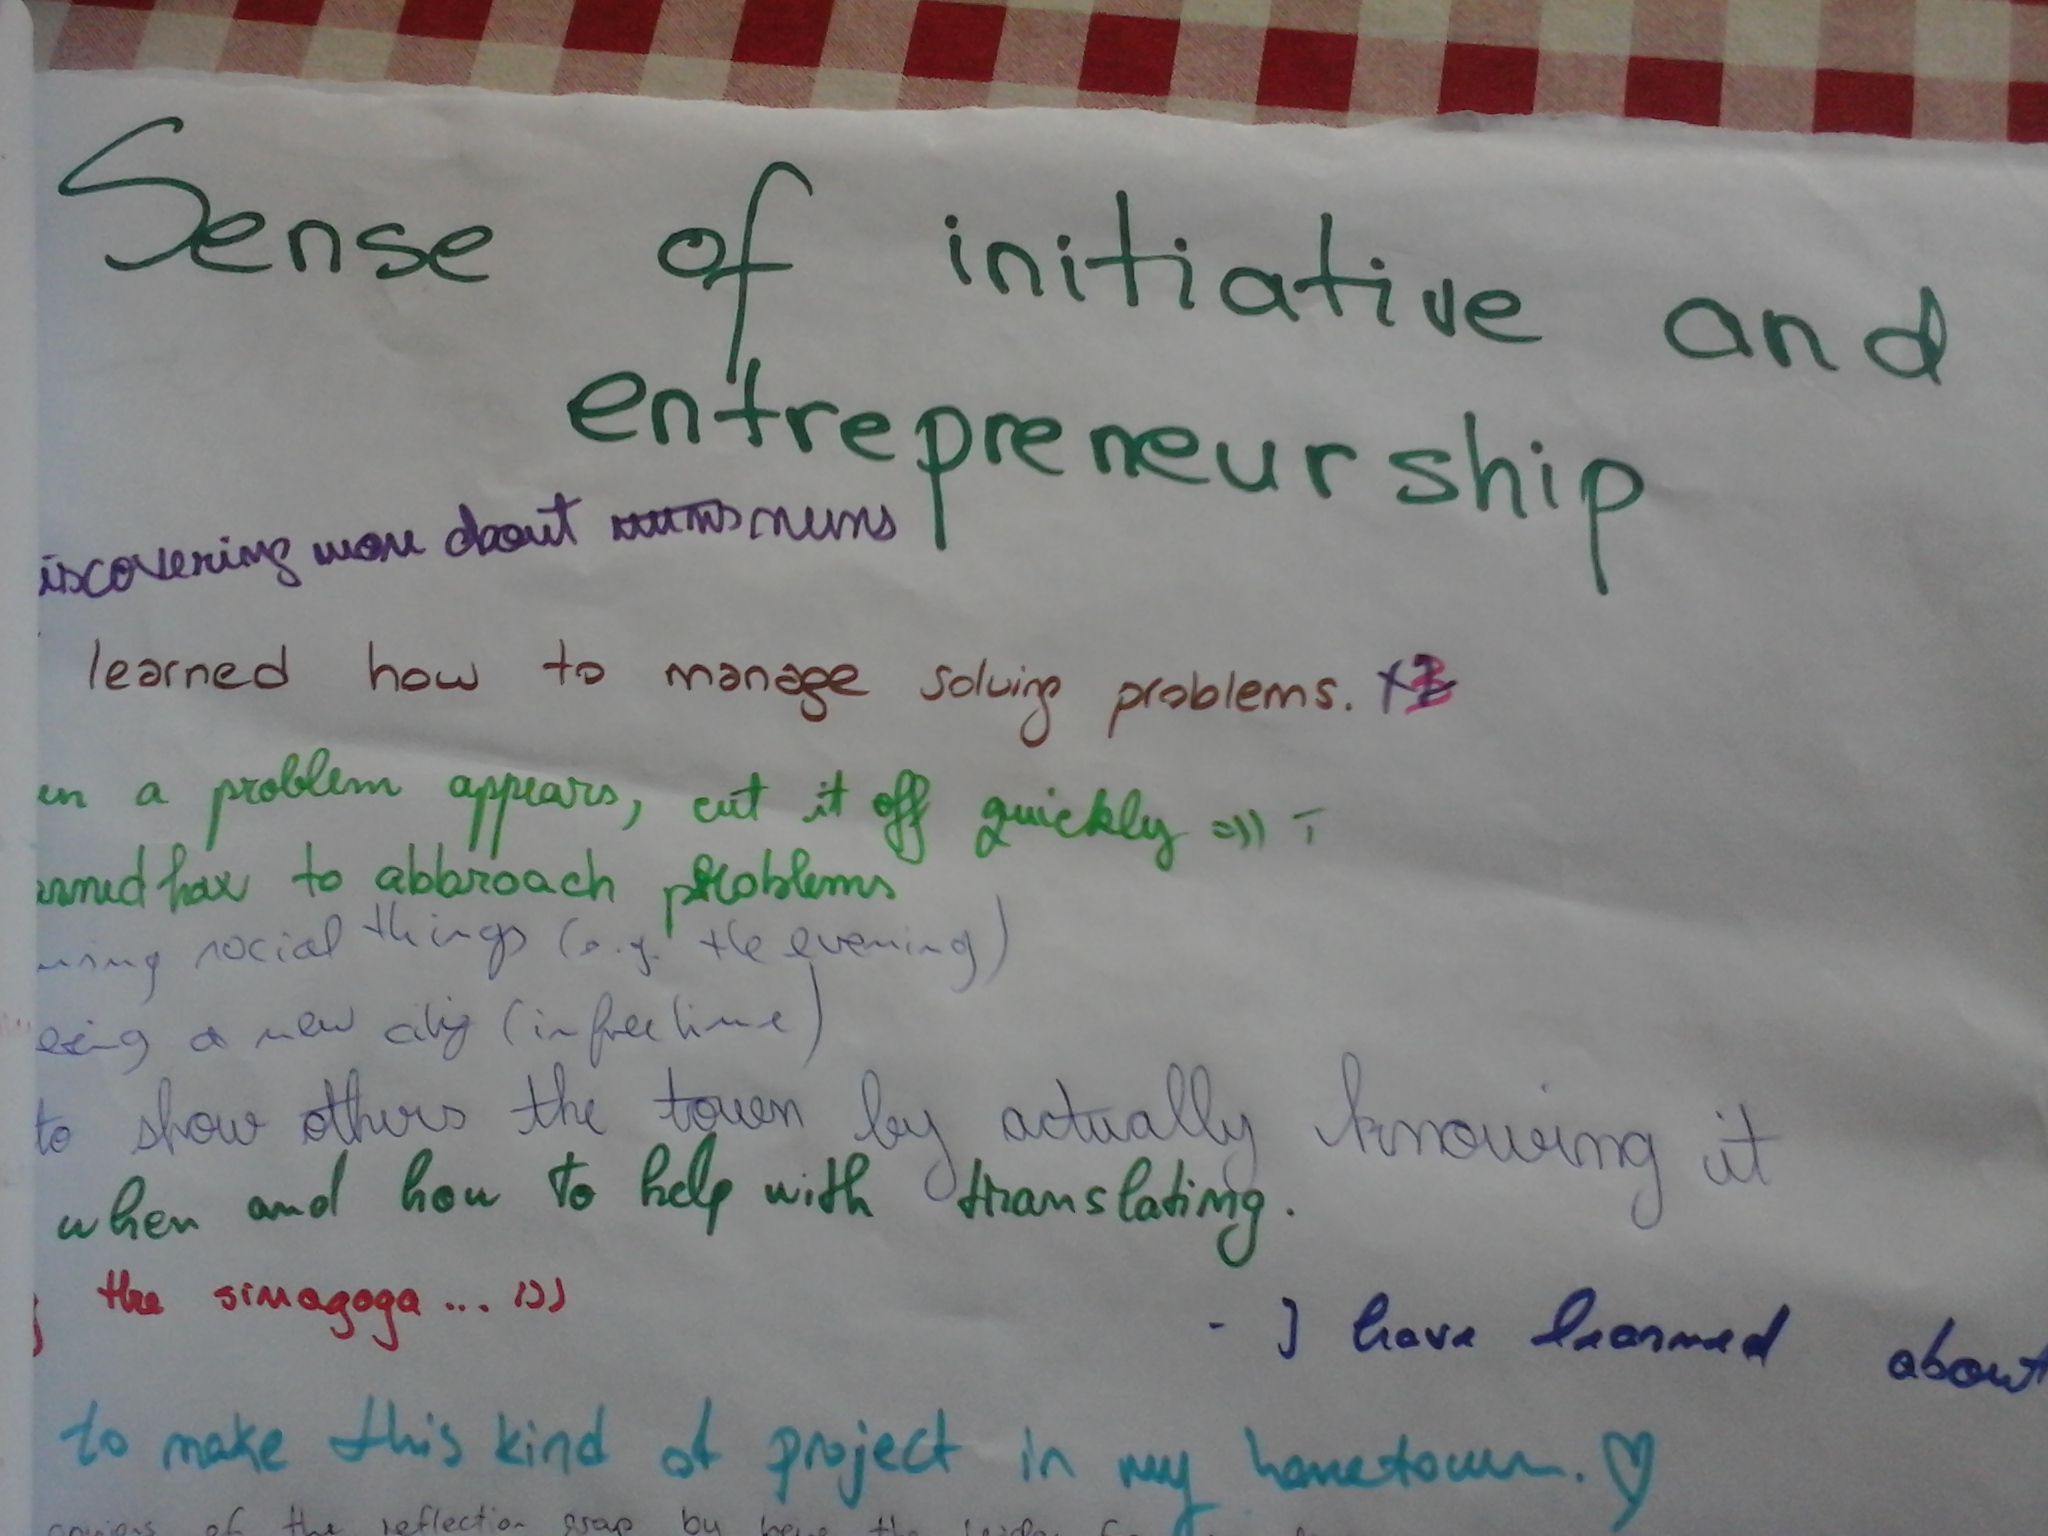 Sense of initiative and
entrepreneurship
iscovering more about nuns
learned how to manage solving problems.
en a problem appears, cut it off quickly =)))
arned how to abbroach problems
social things (e.g. the evening)
eeing a new city (in free time)
to show others the town by actually knowing it
when and how to help with translating.
the sinagoga... :)))
- I have learned about
to make this kind of project in my hometown. ♡
of the reflection by the